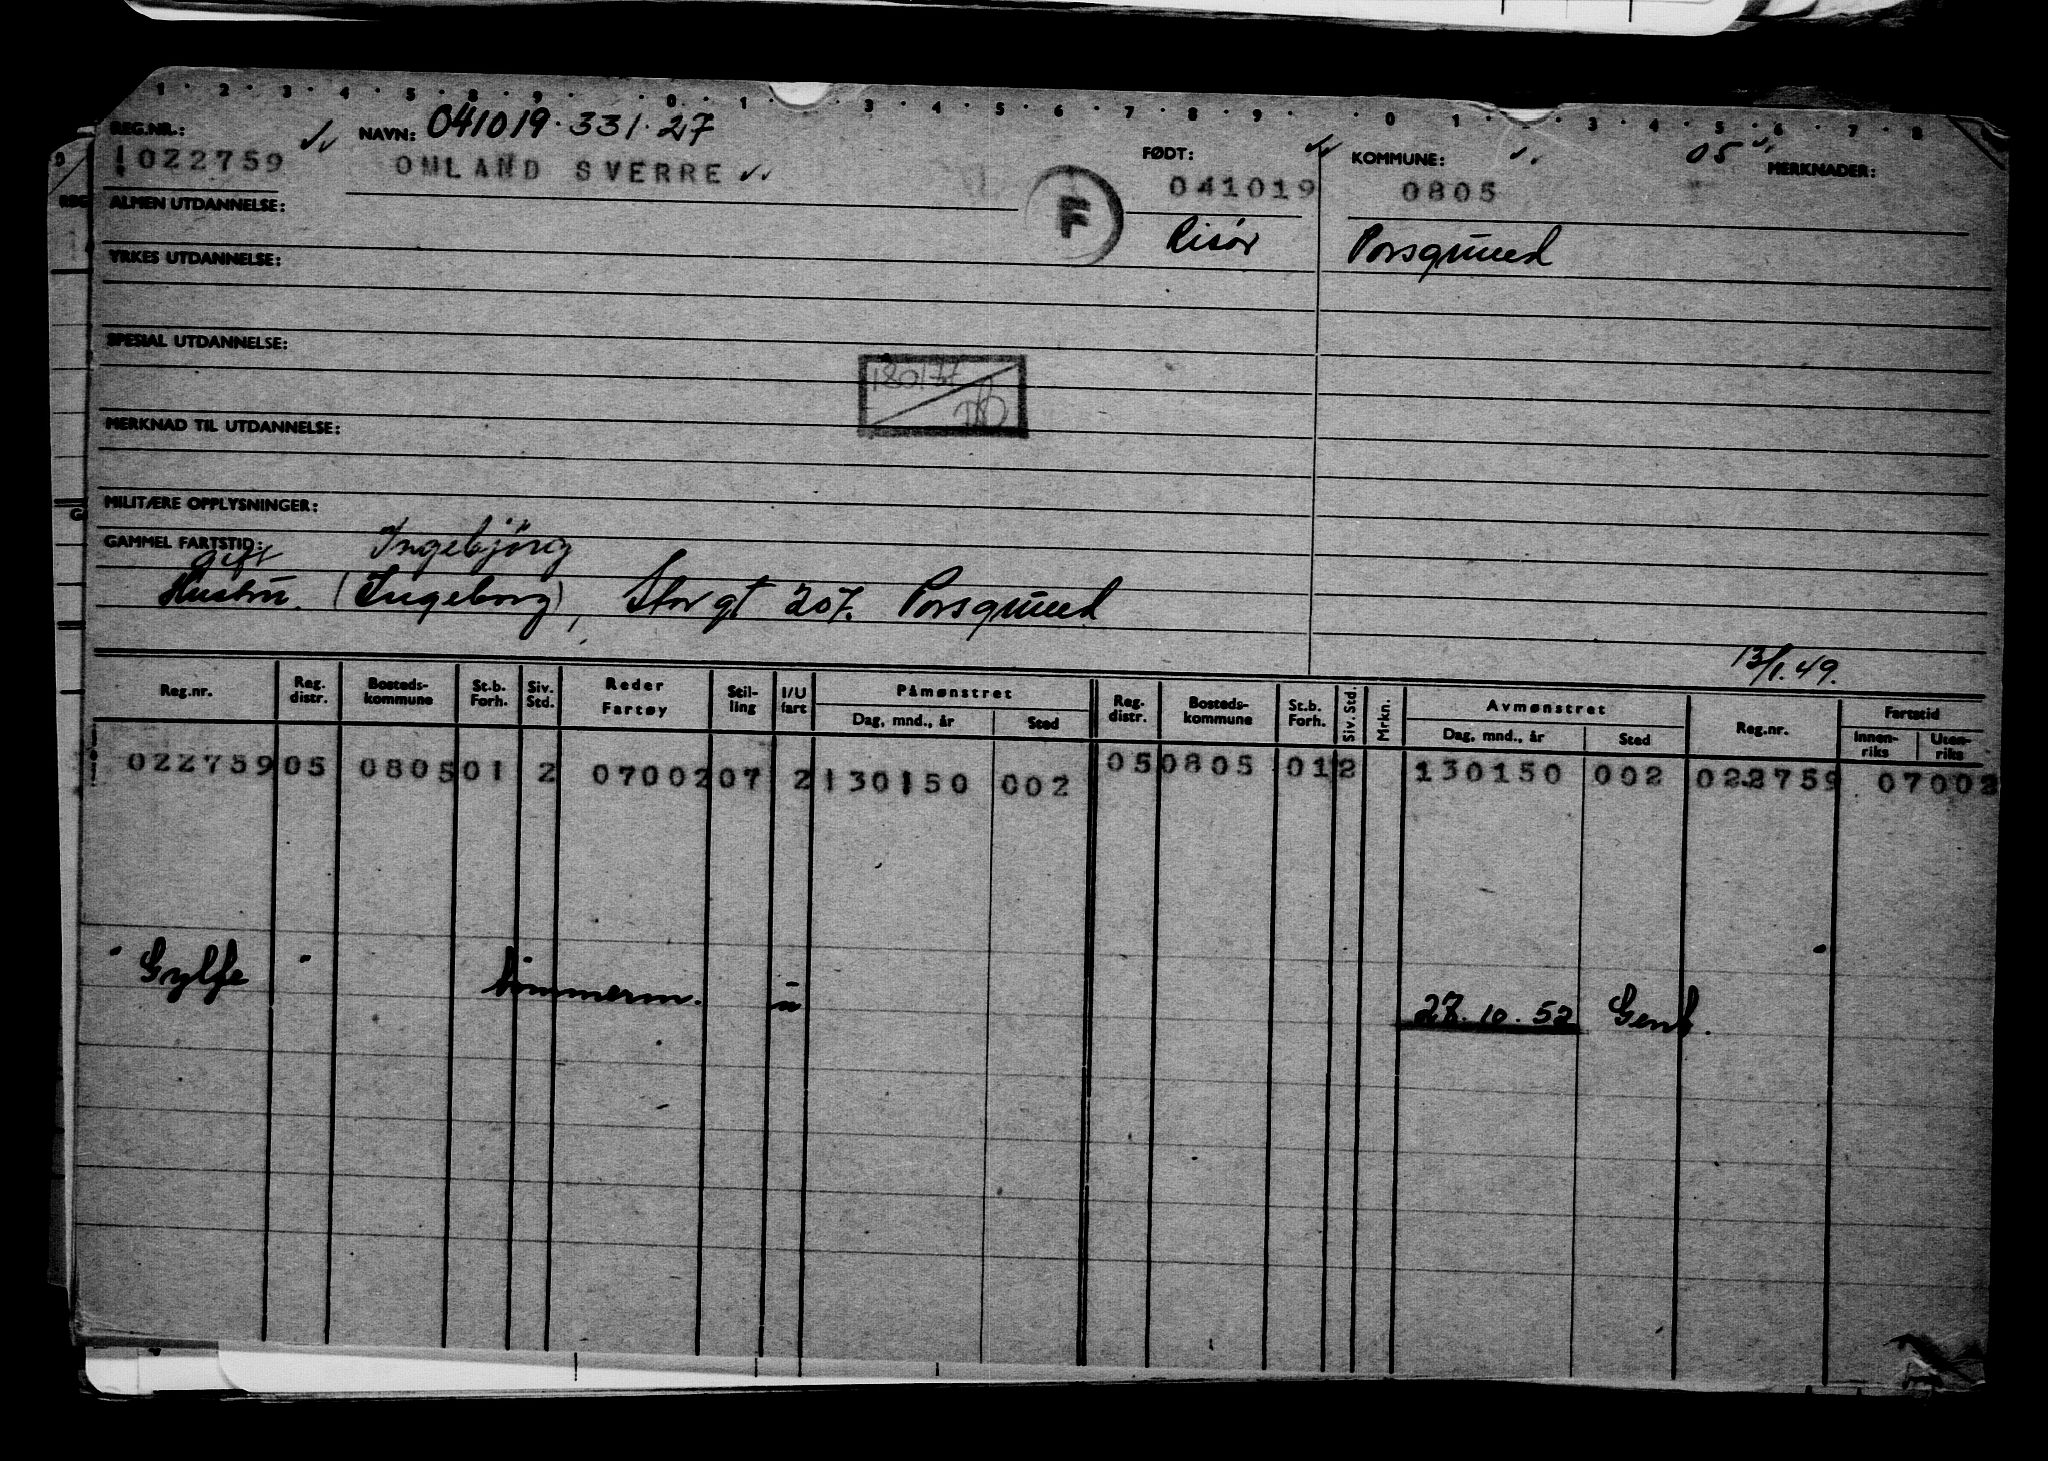 1 2 3 4 5 8 9 0 1 3 4 5 6 7 8 9 0 1 3 4 5 6 7 8
REG.NR.: NAVN: 041019.331.27 FØDT: KOMMUNE: 05 MERKNADER:
1022759 OMLAND SVERRE F 041019 0805
ALMEN UTDANNELSE: Risør Porsgrund
YRKES UTDANNELSE:
SPESIAL UTDANNELSE:
180177
MERKNAD TIL UTDANNELSE:
MILITÆRE OPPLYSNINGER:
GAMMEL FARTSTID: Ingebjörg
gift
Hustru. (Ingeborg), Storgt 207. Porsgrund
13/1.49.
Reg.nr. Reg. distr. Bosteds-kommune St.b. Forh. Siv. Std. Reder Fartøy Stil-ling I/U fart Påmønstret Dag, mnd., år Sted Reg. distr. Bosteds-kommune St.b. Forh. Siv. Std. Mrkn. Avmønstret Dag, mnd., år Sted Reg.nr. Fartstid Innen-riks Uten-riks
022759 05 0805 01 2 07002 07 2 130150 002 05 0805 01 2 130150 002 022759 07002
"Gylfe" tømmerm. u 27.10.52 Gent.